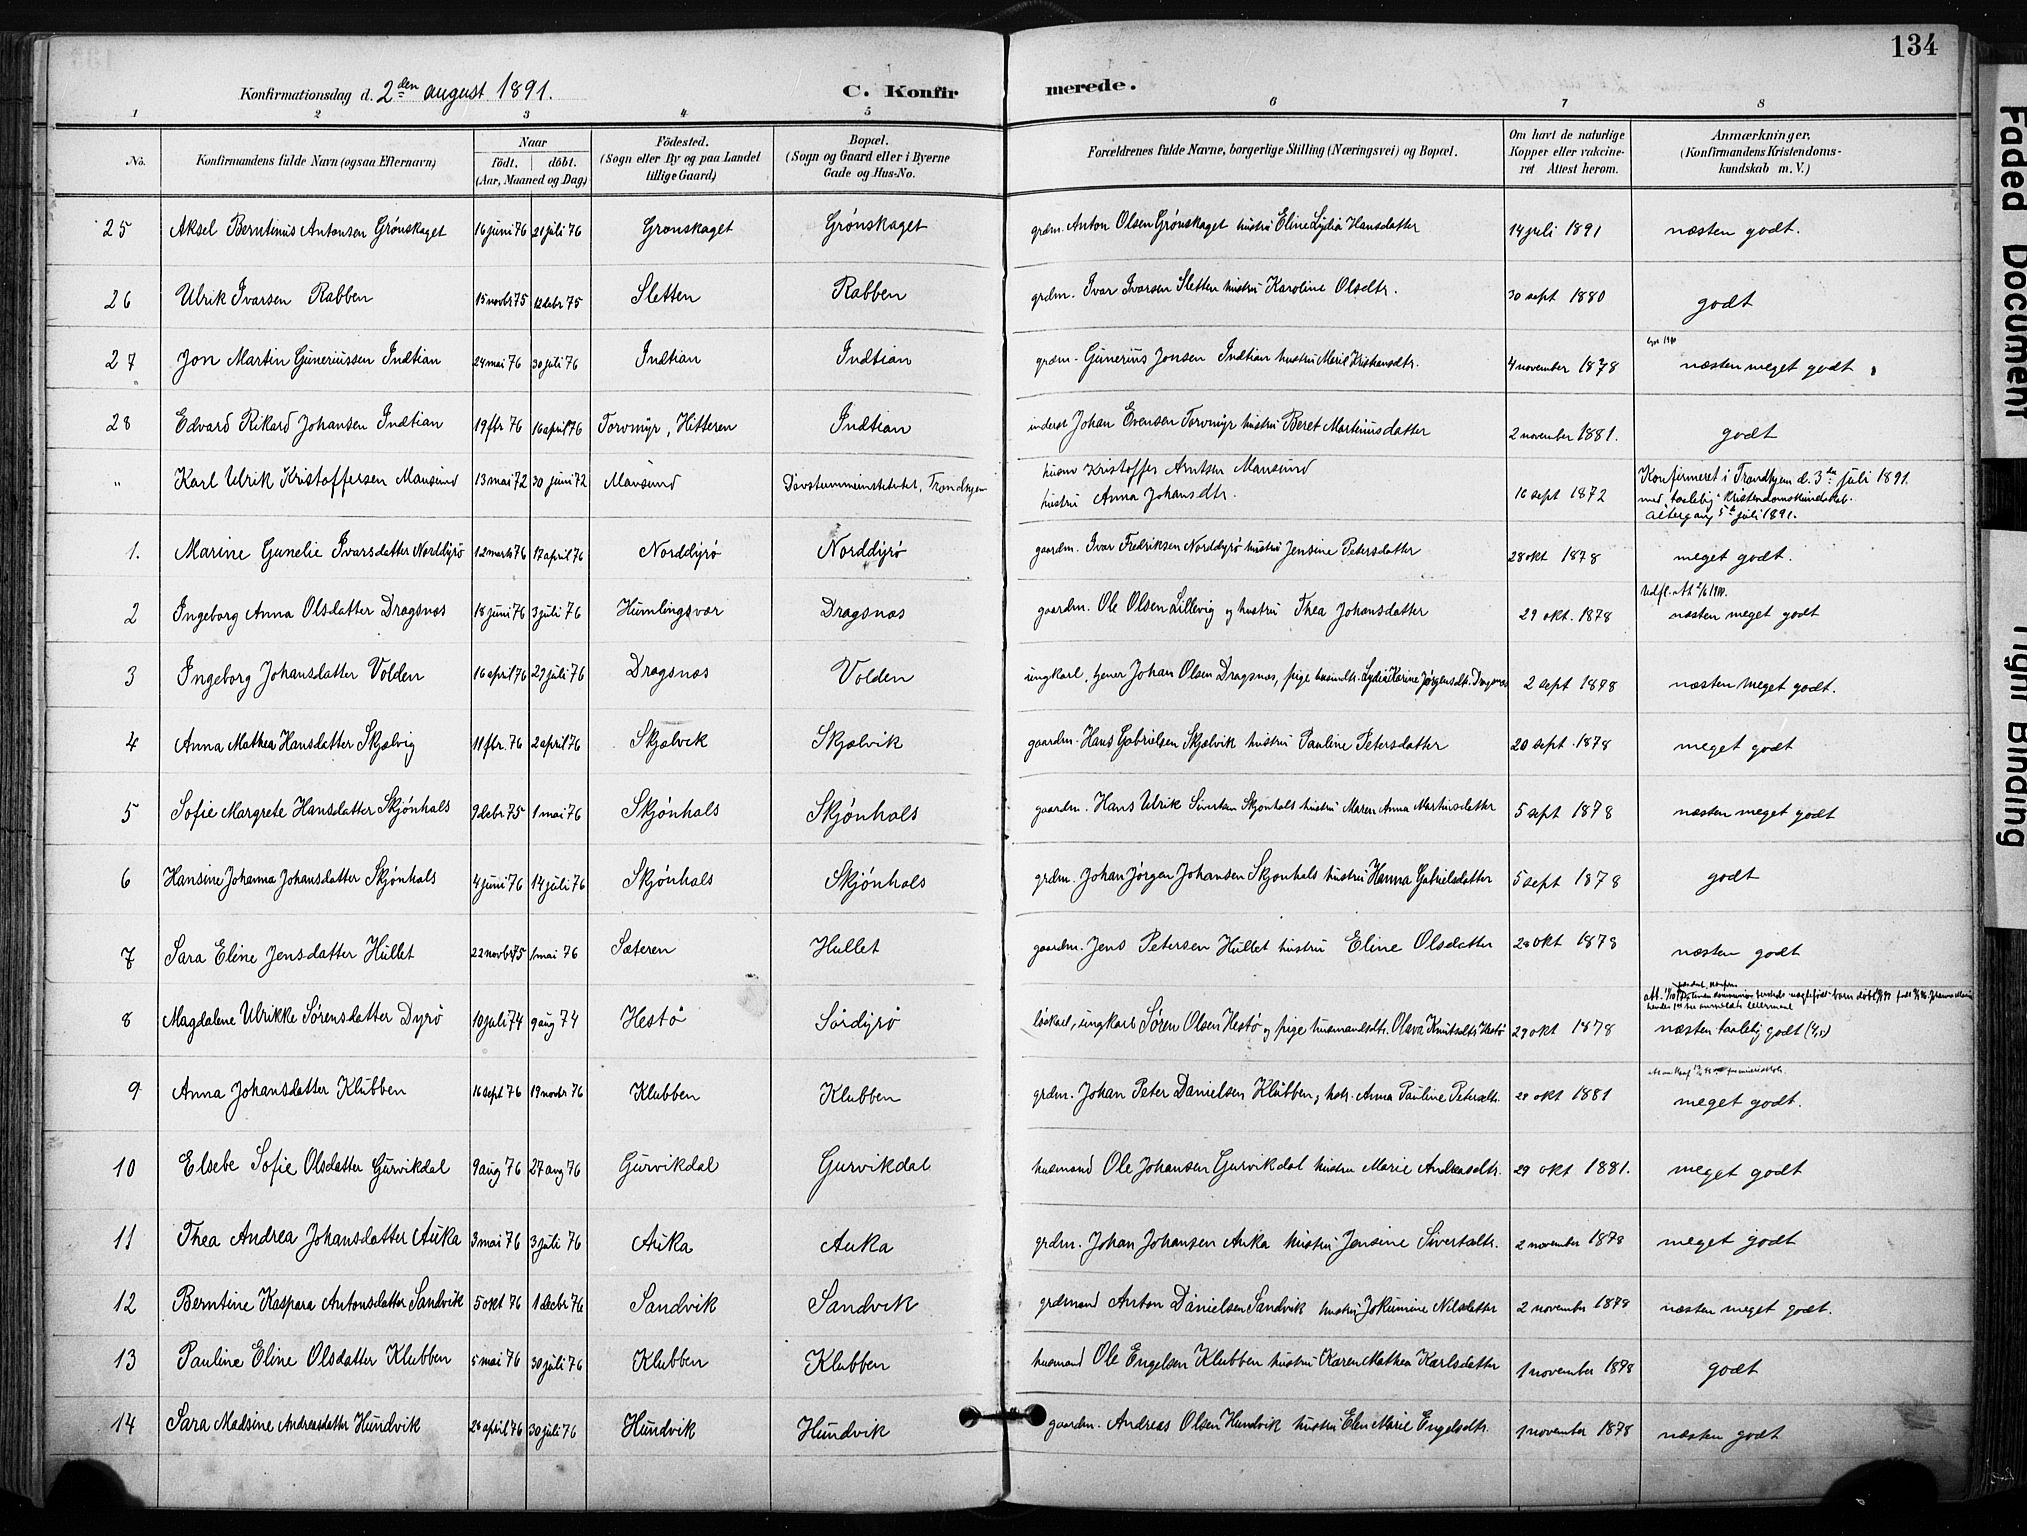 134
Konfirmationsdag d. 2den august 1891.
C. Konfirmerede.
1 2 3 4 5 6 7 8
No. Konfirmandens fulde Navn (ogsaa Efternavn) Naar födt. döbt. (Aar, Maaned og Dag) Födested. (Sogn eller By og paa Landet tillige Gaard) Bopæl. (Sogn og Gaard eller i Byerne Gade og Hus-No. Forældrenes fulde Navne, borgerlige Stilling (Næringsvei) og Bopæl. Om havt de naturlige Kopper eller vakcineret Attest herom. Anmærkninger. (Konfirmandens Kristendomskundskab m. V.)
25 Aksel Berntinus Antonsen Grønskaget 16 juni 76 21 juli 76 Grønskaget Grønskaget grdm. Anton Olsen Grønskaget hustru Eline Lydia Hansdatter 14 juli 1891 næsten godt.
26 Ulrik Ivarsen Rabben 15 novbr 75 12 debr 75 Sletten Rabben grdm. Ivar Ivarsen Sletten hustru Karoline Olsdtr. 30 sept 1880 godt
27 Jon Martin Guneriussen Indtian 24 mai 76 30 juli 76 Indtian Indtian grdm. Gunerius Jonsen Indtian hustru Marit Kristiansdtr. 4 november 1878 næsten meget godt
28 Edvard Rikard Johansen Indtian 19 fbr 76 16 april 76 Torvmyr, Hitteren Indtian inderst Johan Evensen Torvmyr hustru Beret Martinusdatter 2 november 1881. godt
" Karl Ulrik Kristoffersen Mausund 13 mai 72 30 juni 72 Mausund Døvstummeinstitutet, Trondhjem husm Kristoffer Arntsen Mausund hustru Anna Johansdtr. 16 sept 1872 Konfirmeret i Trondhjem d. 3die juli 1891. med taalelig Kristendomskundskab. altergang 5te juli 1891.
1. Marine Gunelie Ivarsdatter Norddyrø 12 marts 76 17 april 76 Norddyrø Norddyrø gaardm. Ivar Fredriksen Norddyrø hustru Jensine Petersdatter 28 okt 1878 meget godt.
2 Ingeborg Anna Olsdatter Dragsnæs 18 juni 76 3 juli 76 Humlingsvær Dragsnæs gaardm. Ole Olsen Lillevig og hustru Thea Johansdatter 29 okt. 1878 næsten meget godt
3 Ingeborg Johansdatter Volden 16 april 76 27 juli 76 Dragsnæs Volden ungkarl, tjener Johan Olsen Dragsnæs, pige husmdtr. Lydia Karine Jørgensdtr. Dragsnæs 2 sept 1878 næsten meget godt.
4 Anna Mathea Hansdatter Skjælvig 11 fbr. 76 2 april 76 Skjælvik Skjælvik gaardm. Hans Gabrielsen Skjælvik hustru Pauline Petersdatter 20 sept. 1878 meget godt
5 Sofie Margrete Hansdatter Skjønhals 9 debr 75 1 mai 76 Skjønhals Skjønhals gaardm. Hans Ulrik Sivertsen Skjønhals hustru Maren Anna Martinsdatter 5 sept 1878 næsten meget godt
6 Hansine Johanna Johansdatter Skjønhals 4 juni 76 14 juli 76 Skjønhals Skjønhals grdm. Johan Jørgen Johansen Skjønhals hustru Hanna Gabrielsdatter 5 sept 1878 godt
7 Sara Eline Jensdatter Hullet 22 novbr 75 1 mai 76 Sæteren Hullet gaardm. Jens Petersen Hullet hustru Eline Olsdatter 28 okt 1878 næsten godt
8 Magdalene Ulrikke Sørensdatter Dyrø 10 juli 74 9 aug 74 Hestø Sørdyrø løskarl, ungkarl Søren Olsen Hestø og pige husmandsdtr. Olava Knutsdtr Hestø 29 okt 1878 næsten taalelig godt
9 Anna Johansdatter Klubben 16 sept 76 19 novbr 76 Klubben Klubben grdm. Johan Peter Danielsen Klubben, hstr. Anna Pauline Petersdtr. 28 okt 1881 meget godt.
10 Elsebe Sofie Olsdatter Gurvikdal 9 aug 76 27 aug 76 Gurvikdal Gurvikdal husmand Ole Johansen Gurvikdal hustru Marie Andreasdtr. 29 okt 1881. meget godt
11 Thea Andrea Johansdatter Auka 3 mai 76 3 juli 76 Auka Auka grdm. Johan Johansen Auka hustru Jensine Sivertsdtr. 2 november 1878 meget godt
12 Berntine Kaspara Antonsdatter Sandvik 5 okt 76 1 decbr 76 Sandvik Sandvik grdmand Anton Danielsen Sandvik hustru Jokumine Nilsdatter 2 november 1878 næsten meget godt.
13 Pauline Eline Olsdatter Klubben 5 mai 76 30 juli 76 Klubben Klubben husmand Ole Engelsen Klubben hustru Karen Mathea Karlsdatter 1 november 1878 godt
14 Sara Madsine Andreasdatter Hundvik 26 april 76 30 juli 76 Hundvik Hundvik gaardm. Andreas Olsen Hundvik hustru Elen Marie Engelsdtr. 1 november 1878 næsten godt
Faded Document
Tight Binding